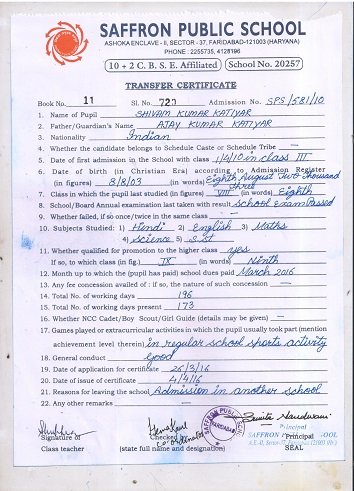 SAFFRON PUBLIC SCHOOL
ASHOKA ENCLAVE - II, SECTOR - 37, FARIDABAD-121003 (HARYANA)
PHONE : 2255735, 4128196
10 + 2 C. B. S. E. Affiliated School No. 20257
TRANSFER CERTIFICATE
Book No. 11 Sl. No. 720 Admission No. SPS/581/10
1. Name of Pupil SHIVAM KUMAR KATIYAR
2. Father/Guardian's Name AJAY KUMAR KATIYAR
3. Nationality Indian
4. Whether the candidate belongs to Schedule Caste or Schedule Tribe —
5. Date of first admission in the School with class 1/4/10 in class III
6. Date of birth (in Christian Era) according to Admission Register
(in figures) 8/8/03 (in words) Eighth August Two thousand
three
7. Class in which the pupil last studied (in figures) VIII (in words) Eighth
8. School/Board Annual examination last taken with result School Exam Passed
9. Whether failed, if so once/twice in the same class —
10. Subjects Studied: 1) Hindi 2) English 3) Maths
4) Science 5) S.St
11. Whether qualified for promotion to the higher class yes
If so, to which class (in fig.) IX (in words) Ninth
12. Month up to which the (pupil has paid) school dues paid March 2016
13. Any fee concession availed of : if so, the nature of such concession —
14. Total No. of working days 196
15. Total No. of working days present 173
16. Whether NCC Cadet/Boy Scout/Girl Guide (details may be given) —
17. Games played or extracurricular activities in which the pupil usually took part (mention
achievement level therein) in regular school sports activity
18. General conduct good
19. Date of application for certificate 26/3/16
20. Date of issue of certificate 4/4/16
21. Reasons for leaving the school Admission in another school
22. Any other remarks —
SAFFRON PUBLIC
FARIDABAD
Principal
Signature of Checked by Principal
Class teacher (state full name and designation) SEAL